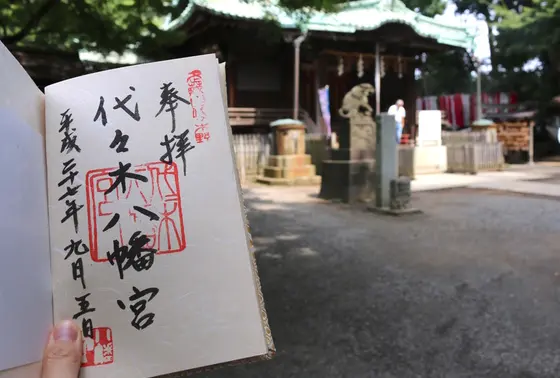 奉拝
代々木八幡宮
平成二十七年九月五日